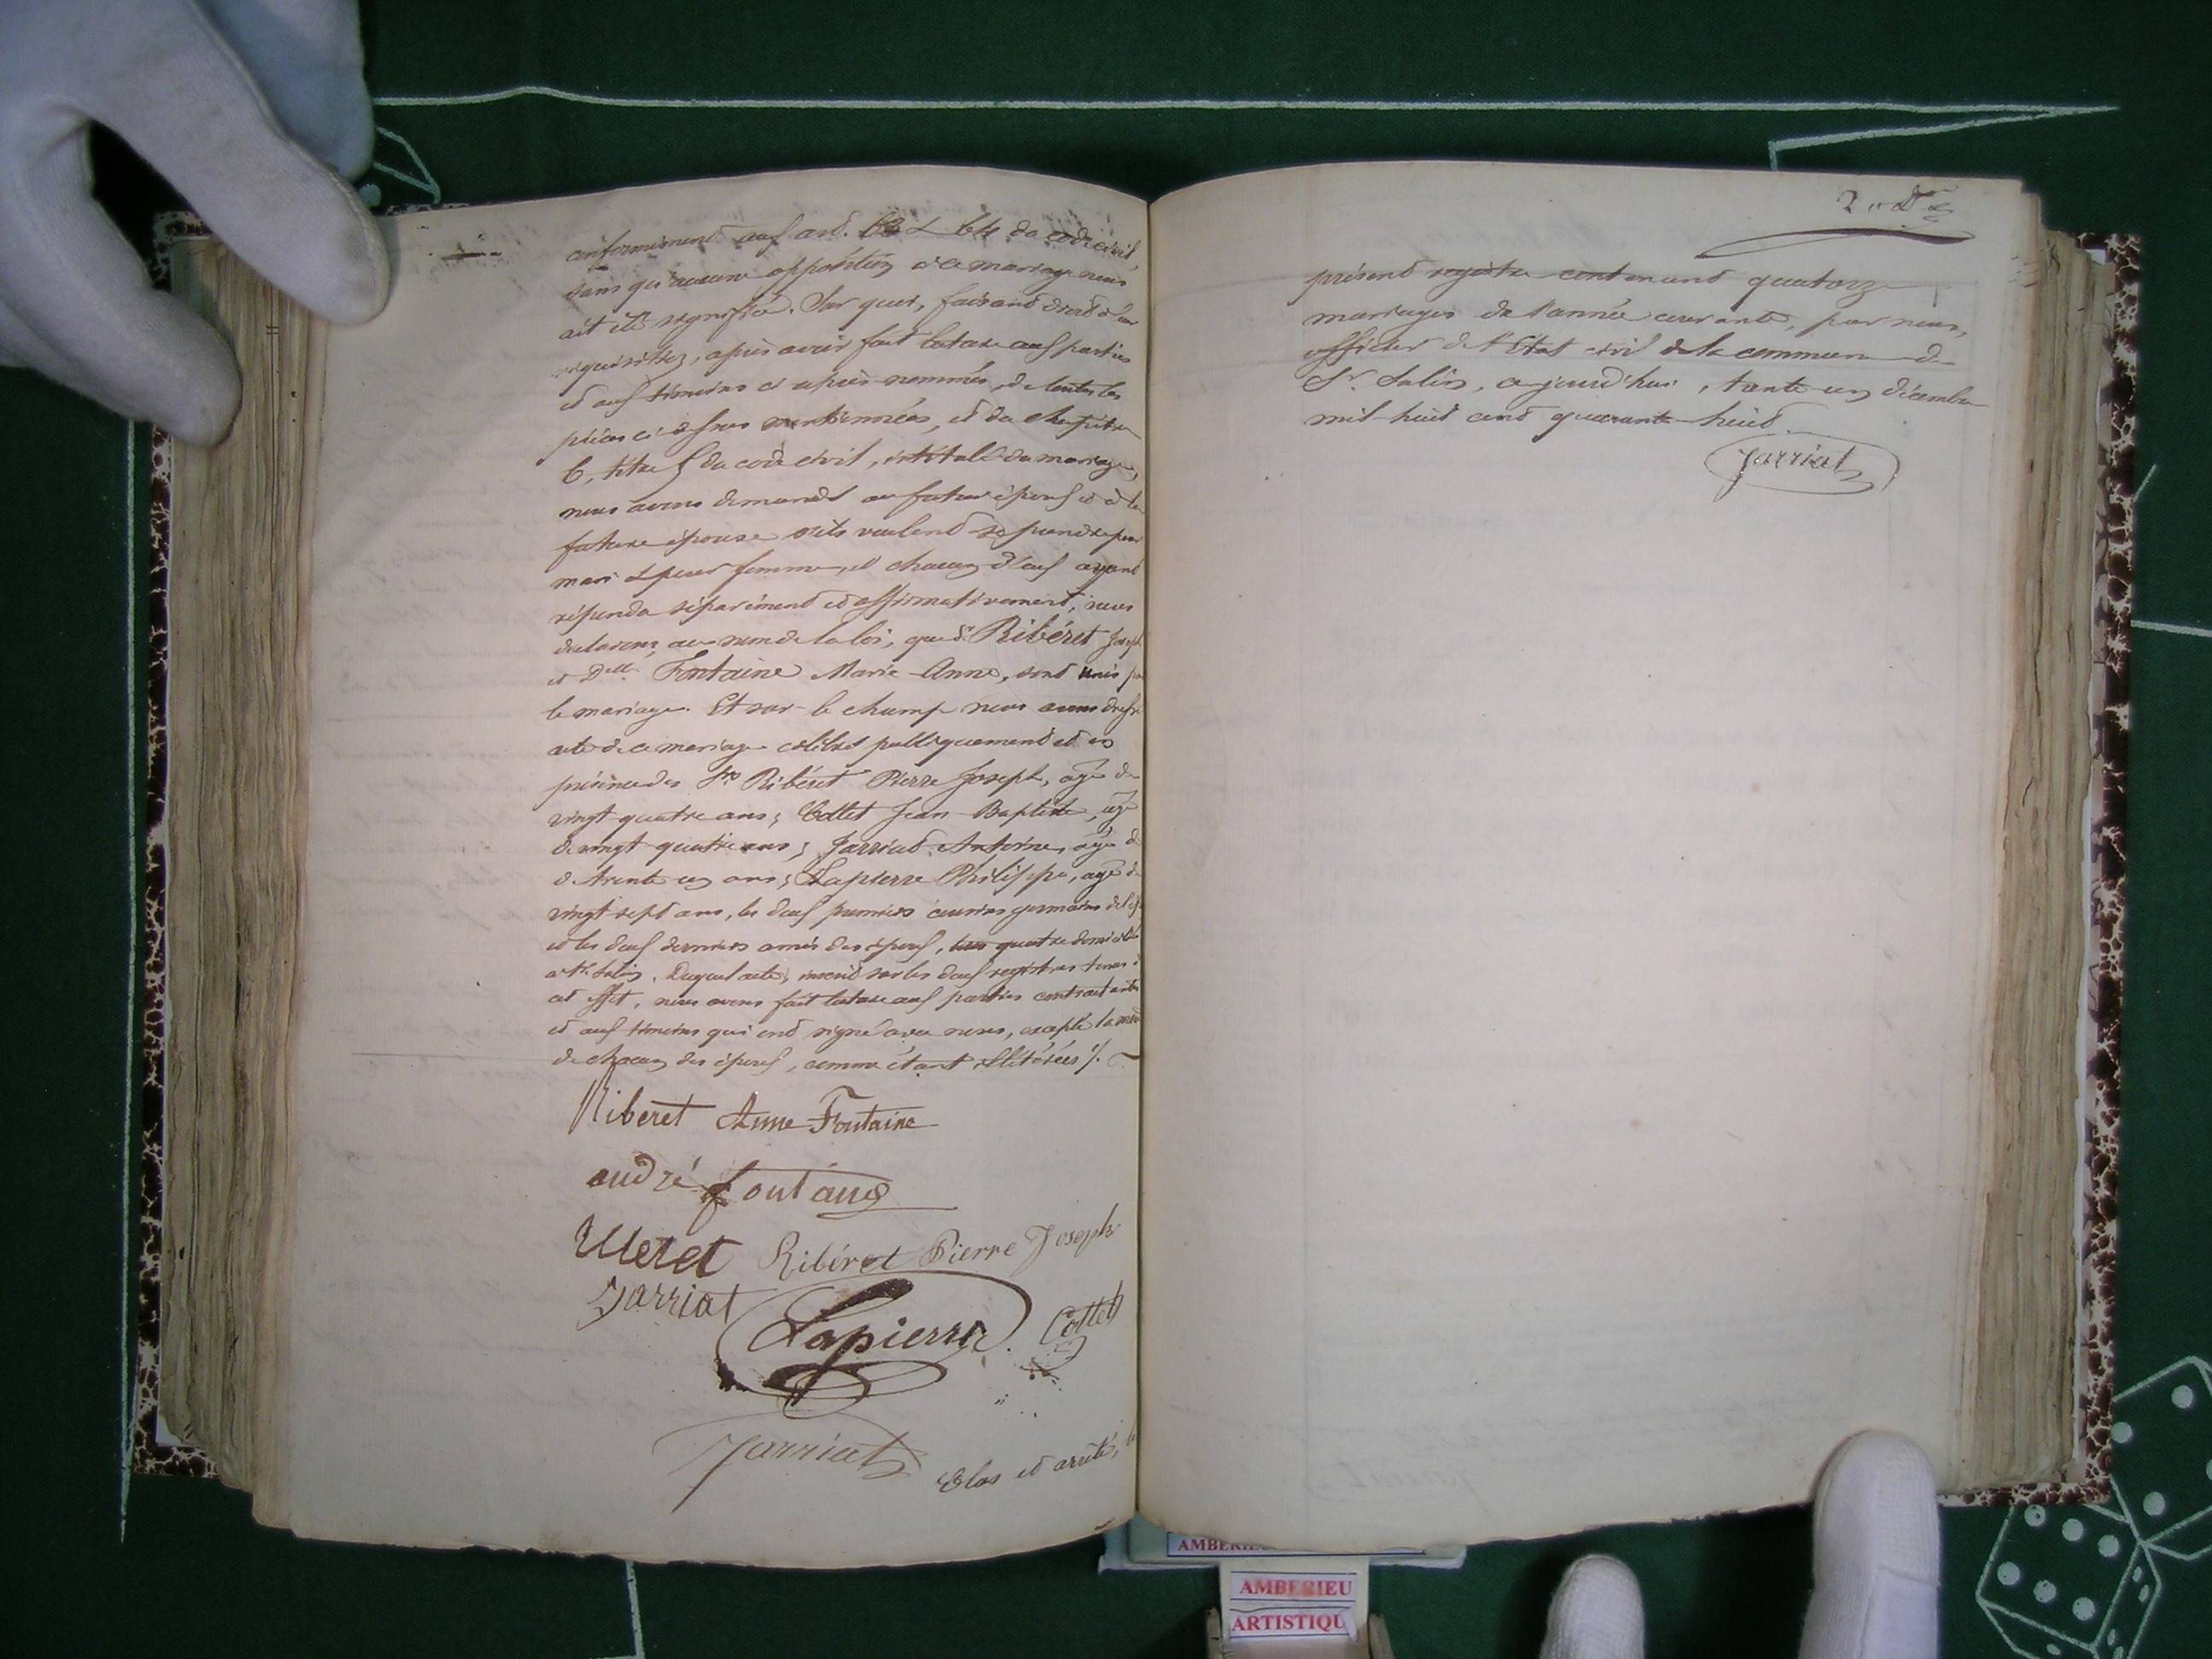 conformément aux art. 63 & 64 du code civil,
sans qu'aucune opposition à ce mariage nous
ait été signifiée. Sur quoi, faisant droit à leur
réquisition, après avoir fait lecture aux parties
et aux témoins ci après nommés, de toutes les
pièces ci-dessus mentionnées, et du chapitre
6, titre 5 du code civil, intitulé du mariage,
nous avons demandé au futur époux et à la
future épouse s'ils veulent se prendre pour
mari & pour femme, et chacun d'eux ayant
répondu séparément et affirmativement, nous
déclarons, au nom de la loi, que Sr Ribéret Joseph
et Dlle Fontaine Marie-Anne, sont unis par
le mariage. Et sur-le champ nous avons dressé
acte de ce mariage célébré publiquement et en
présence des Srs Ribéret Pierre Joseph, âgé de
vingt quatre ans ; Collet Jean-Baptiste, âgé
de vingt-quatre ans ; Jarriat Antoine, âgé de
de trente un ans ; Lapierre Philippe, âgé de
vingt-sept ans, les deux premiers cousins germains de l'
et les deux derniers amis des époux, tous quatre domiciliés
à . Duquel acte, inscrit sur les deux registres tenus à
cet effet, nous avons fait lecture aux parties contractantes
et aux témoins qui ont signé avec nous, excepté la mère
de chacun des époux, comme étant illétérées ./.
Riberet Anne Fontaine
andré fontaine
Ribéret Pierre Joseph
Jarriat Lapierre Collet
Jarriat
Clos et arrêté, le
2 "
présent registre contenant quatorze
mariages de l'année courante, par nous,
officier de l'Etat civil de la commune de
St. , aujourd'hui, trente un décembre
mil-huit cent quarante-huit.
Jarriat
AMBERIEU
AMBERIEU
ARTISTIQU